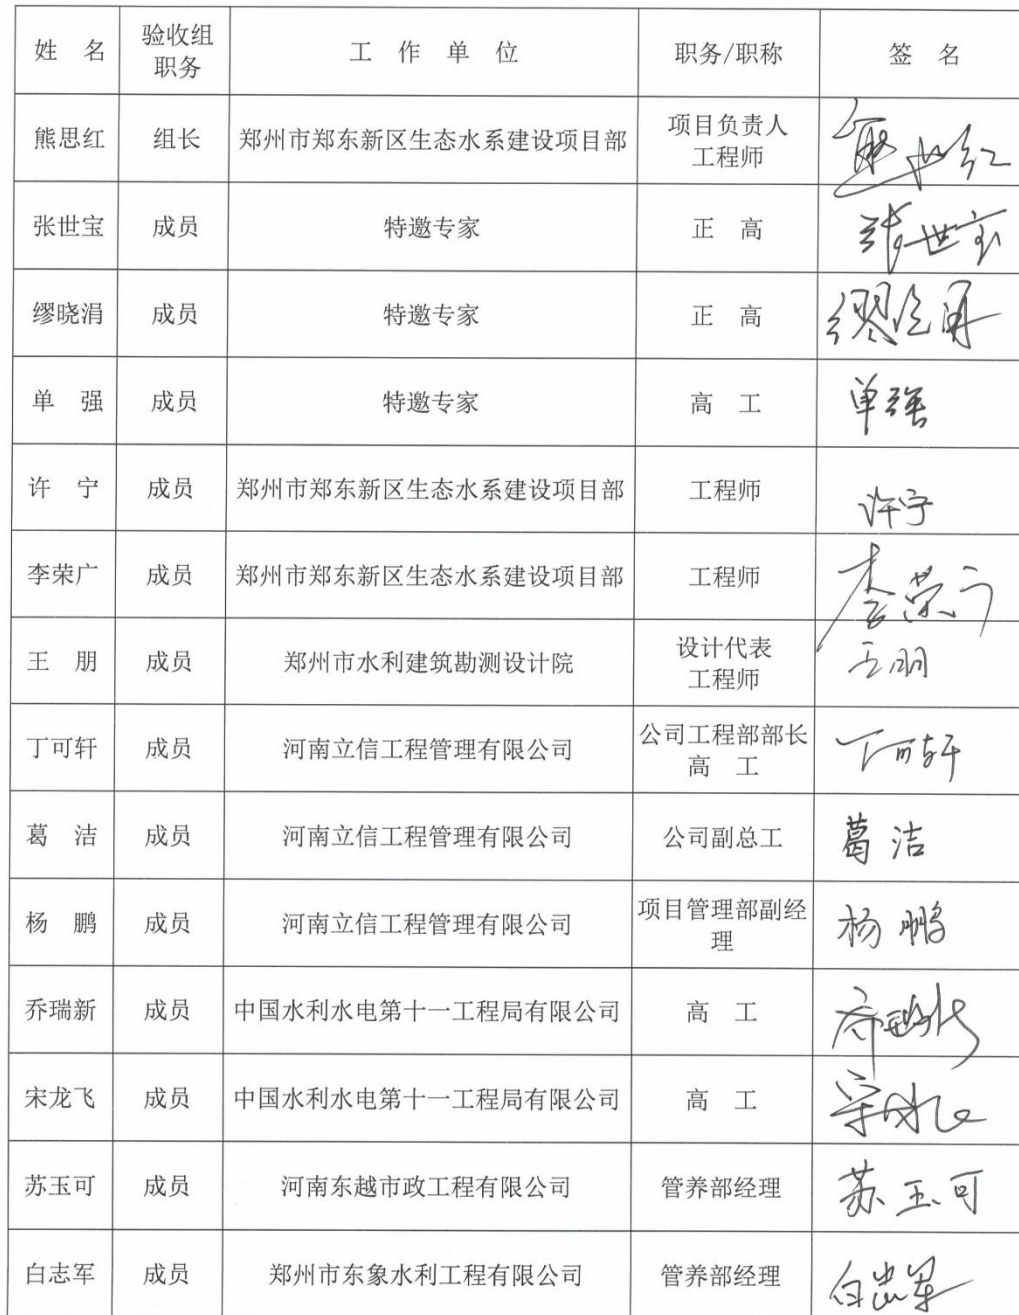 姓 名 验收组职务 工 作 单 位 职务/职称 签 名
熊思红 组长 郑州市郑东新区生态水系建设项目部 项目负责人 工程师 熊思红
张世宝 成员 特邀专家 正 高 张世宝
缪晓涓 成员 特邀专家 正 高 缪晓涓
单 强 成员 特邀专家 高 工 单强
许 宁 成员 郑州市郑东新区生态水系建设项目部 工程师 许宁
李荣广 成员 郑州市郑东新区生态水系建设项目部 工程师 李荣广
王 朋 成员 郑州市水利建筑勘测设计院 设计代表 工程师 王朋
丁可轩 成员 河南立信工程管理有限公司 公司工程部部长 高 工 丁可轩
葛 洁 成员 河南立信工程管理有限公司 公司副总工 葛洁
杨 鹏 成员 河南立信工程管理有限公司 项目管理部副经理 杨鹏
乔瑞新 成员 中国水利水电第十一工程局有限公司 高 工 乔瑞新
宋龙飞 成员 中国水利水电第十一工程局有限公司 高 工 宋龙飞
苏玉可 成员 河南东越市政工程有限公司 管养部经理 苏玉可
白志军 成员 郑州市东象水利工程有限公司 管养部经理 白志军